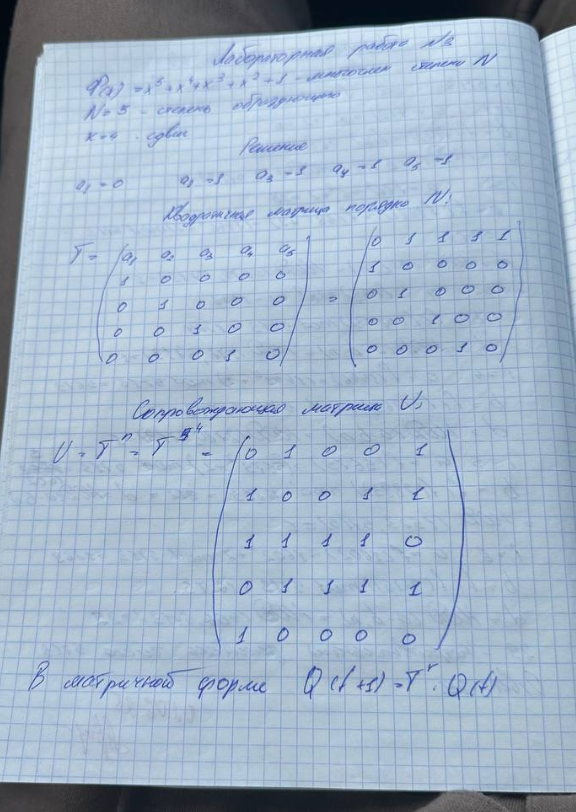 Лабораторная работа №3
Ф(x) = x⁵ + x⁴ + x³ + x² + 1 - многочлен степени N
N = 5 - степень образующего
k = 4 - сдвиг
Решение
a₁ = 0 a₂ = 1 a₃ = 1 a₄ = 1 a₅ = 1
Квадратная матрица порядка N:
T = ( a₁ a₂ a₃ a₄ a₅ ) = ( 0 1 1 1 1 )
1 0 0 0 0 1 0 0 0 0
0 1 0 0 0 0 1 0 0 0
0 0 1 0 0 0 0 1 0 0
0 0 0 1 0 0 0 0 1 0
Сопровождающая матрица U:
U = Tⁿ = T⁴ = ( 0 1 0 0 1 )
1 0 0 1 1
1 1 1 1 0
0 1 1 1 1
1 0 0 0 0
В матричной форме Q(t+1) = Tʳ · Q(t)